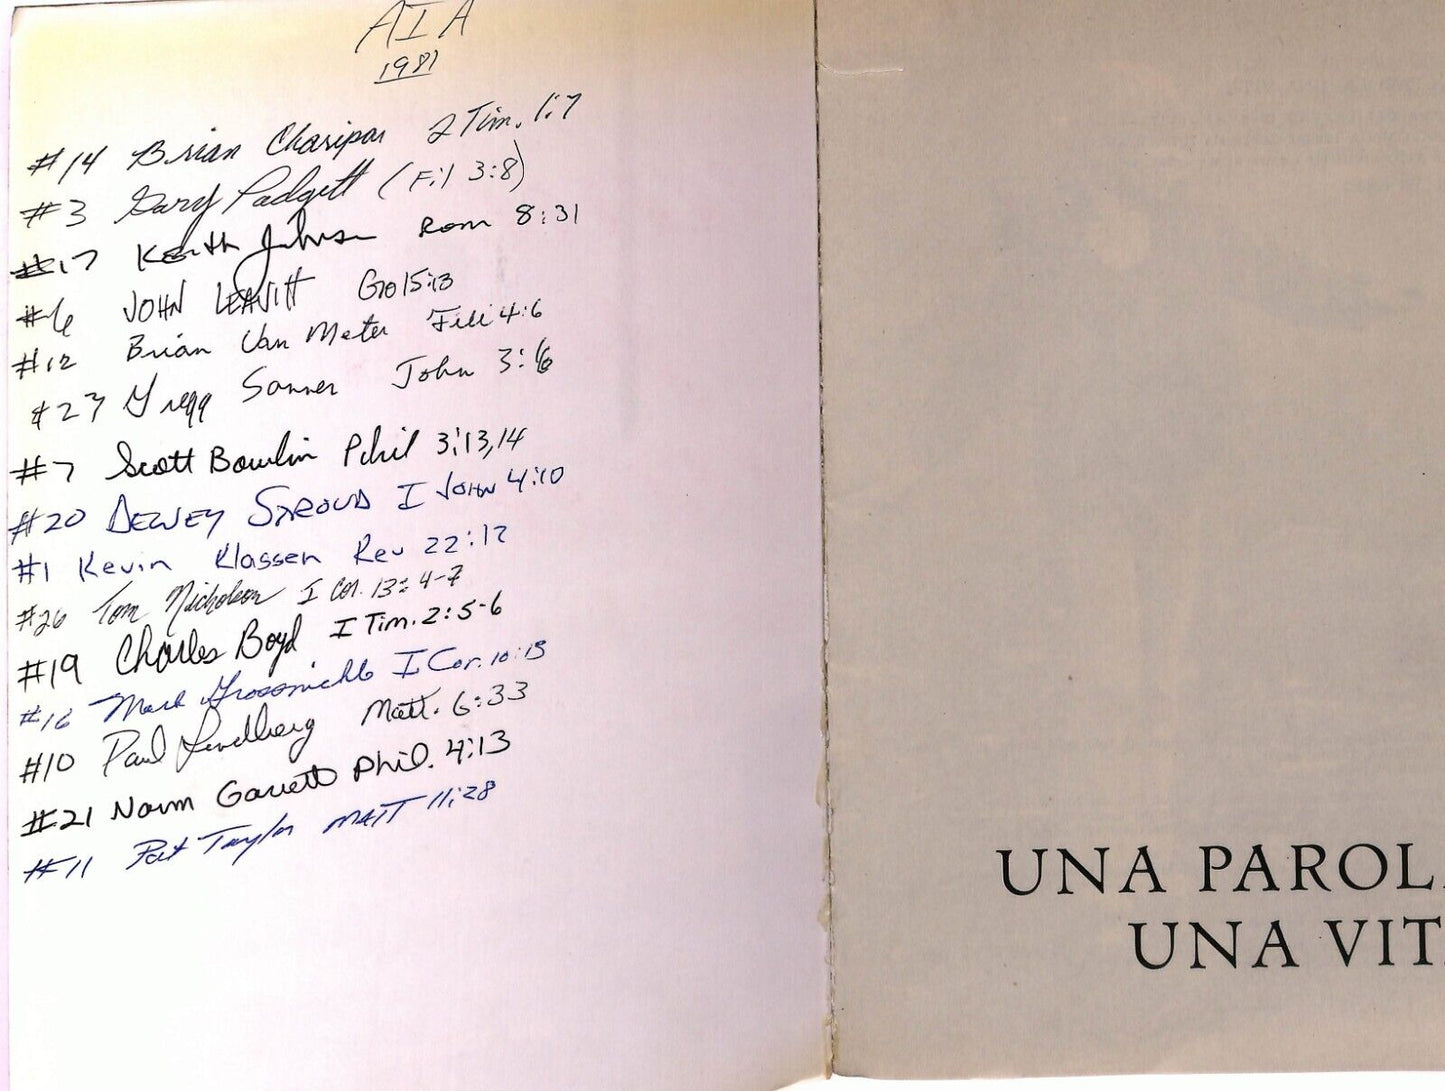 AIA
1981
#14 Brian Charipar 2 Tim. 1:7
#3 Gary Padgett (Fil 3:8)
#17 Keith Johnson Rom 8:31
#6 JOHN LEAVITT Gv 15:13
#12 Brian Van Meter Fili 4:6
#23 Gregg Sanner John 3:16
#7 Scott Bowlin Phil 3:13,14
#20 DEWEY STROUD I JOHN 4:10
#1 Kevin Klassen Rev 22:12
#26 Tom Nicholson I Cor. 13:4-7
#19 Charles Boyd I Tim. 2:5-6
#16 Mark Grossnickle I Cor. 10:13
#10 Paul Lindberg Matt. 6:33
#21 Norm Garrett Phil. 4:13
#11 Pat Taylor MATT 11:28
UNA PAROL
UNA VIT